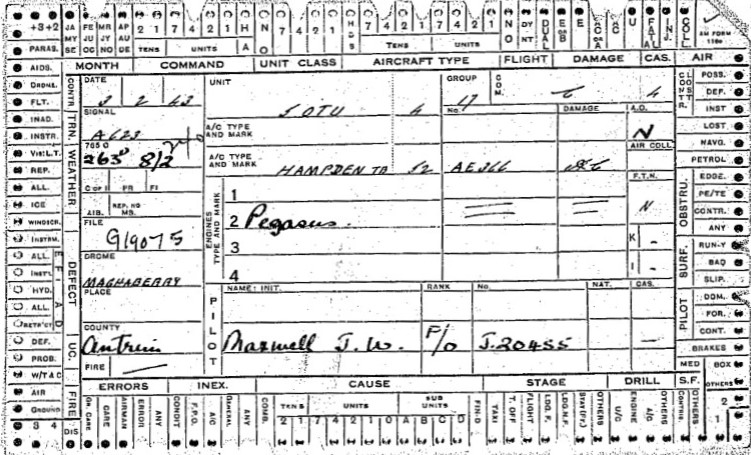 AM FORM 1180
+3 +2 JA MY SE FE JU OC MR JY NO AP AU DE 2 1 7 4 2 1 H A NO
TENS UNITS
NO DY NT DUAL
U FATAL INJ. COLL.
PARAS. MONTH COMMAND UNIT CLASS AIRCRAFT TYPE FLIGHT DAMAGE CAS. AIR
AIDS.
DROME.
FLT.
INAD.
INSTR.
VIS: L.T.
REP.
ALL.
ICE
WINDSCR.
INSTRM.
ALL.
INST'L
HYD.
ALL.
RETR'CT
DEF.
PROB.
W/T A C
AIR
GROUND
3 4
CONTR. TRN. WEATHER DEFECT UC. FIRE DIS
DATE 3 2 43
SIGNAL A623
765 C 8/2
C OF I PR FI
AIB. REP. NO MS.
FILE G19075
DROME MAGHABERRY
PLACE
COUNTY Antrim
FIRE —
UNIT 5 OTU 4 GROUP 17 COM. 4
A/C TYPE AND MARK No. DAMAGE A.D. N
A/C TYPE AND MARK HAMPDEN TB 12 AE366 AIR COLL
F.T.N. N
ENGINES TYPE AND MARK
1
2 Pegasus.
3 K —
4 I —
PILOT
NAME: INIT. RANK No. NAT. CAS.
Maxwell J. W. F/O J.20455
CONSTR. OBSTRU. SURF. PILOT
POSS.
DEF.
INST
LOST
NAVG.
PETROL
EDGE.
PE/TE
CONTR.
ANY
RUN-Y
BAD
SLIP.
DOM.
FOR.
CONT.
BRAKES
MED BOX
OTHERS
2
1
ERRORS INEX. CAUSE STAGE DRILL S.F.
OR. CARE CARE AIRMAN ERROR ANY CONDIT F.P.O. A/C GENERAL ANY COMB. TENS UNITS SUB UNITS FIN-D TAXI T. OFF FLIGHT LDG. F. LDG.N.F. STAT(FF.) OTHERS U/C ENGINE A/C OTHERS CONTRIB. OTHERS
2 1 7 4 2 1 0 A B C D